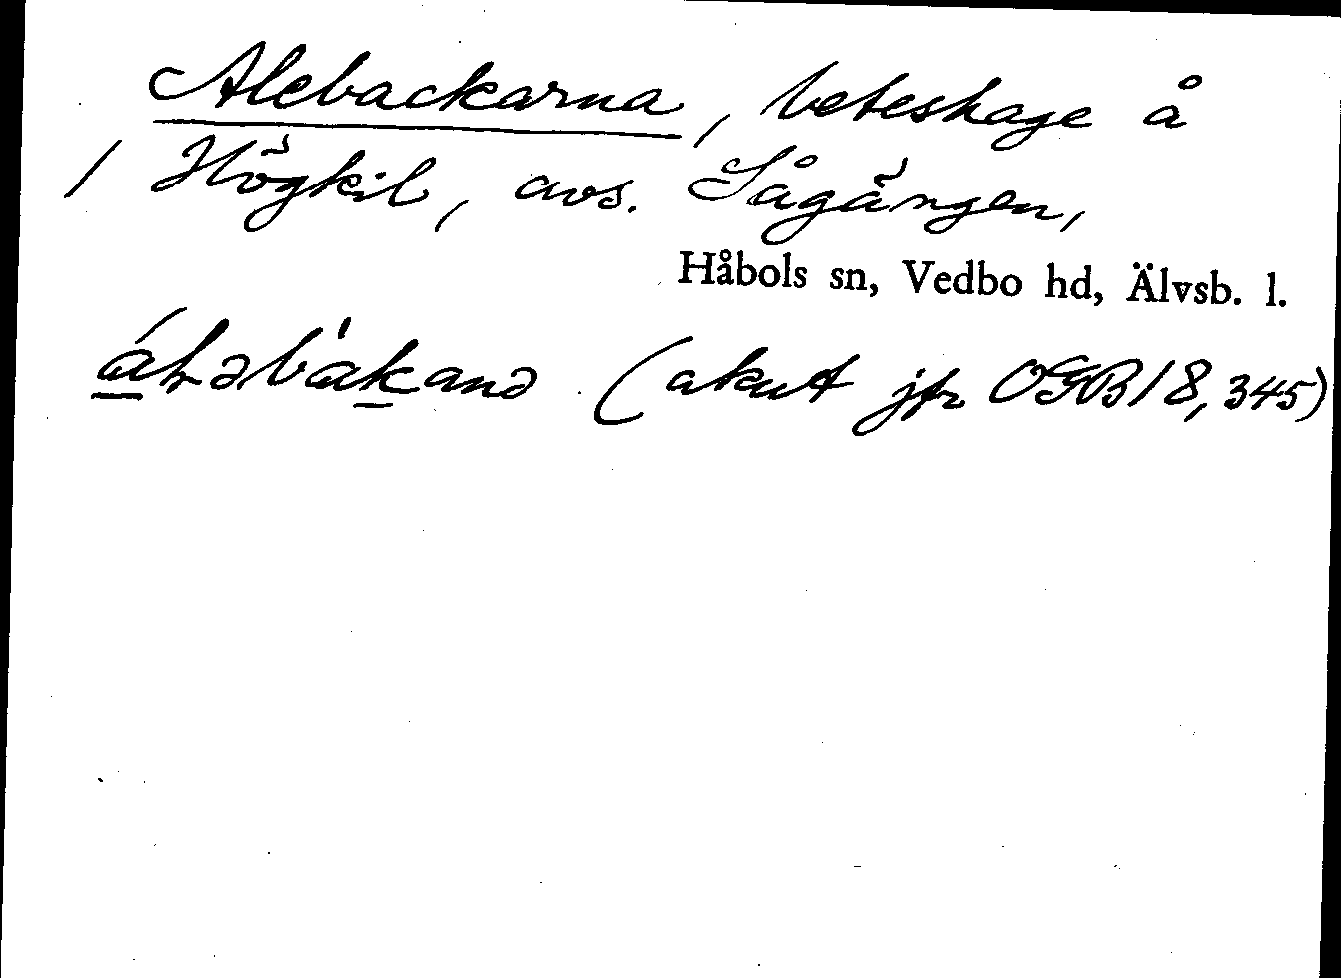 Alebackarna, beteshage å
1 Högkil, avs. Sågängen,
Håbols sn, Vedbo hd, Älvsb. l.
(akut jfr OGB 18, 345)